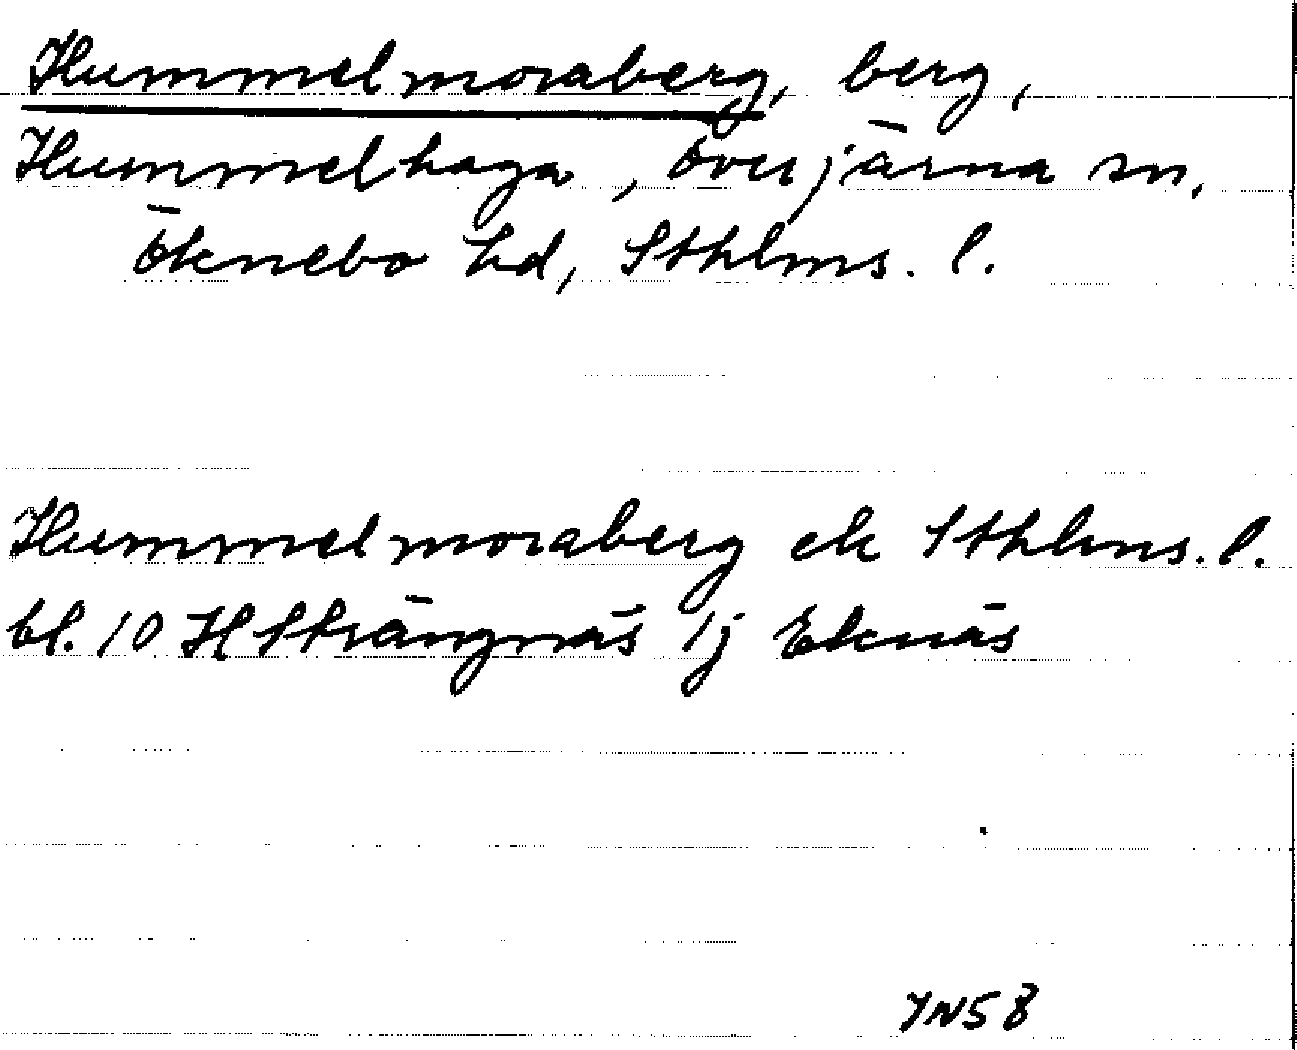 Hummelmoraberg, berg,
Hummelhaga, Överjärna sn,
Öknebo hd, Sthlms. l.
Hummelmoraberg ek Sthlms. l.
bl. 10 H Strängnäs 1j Eknäs
YN58